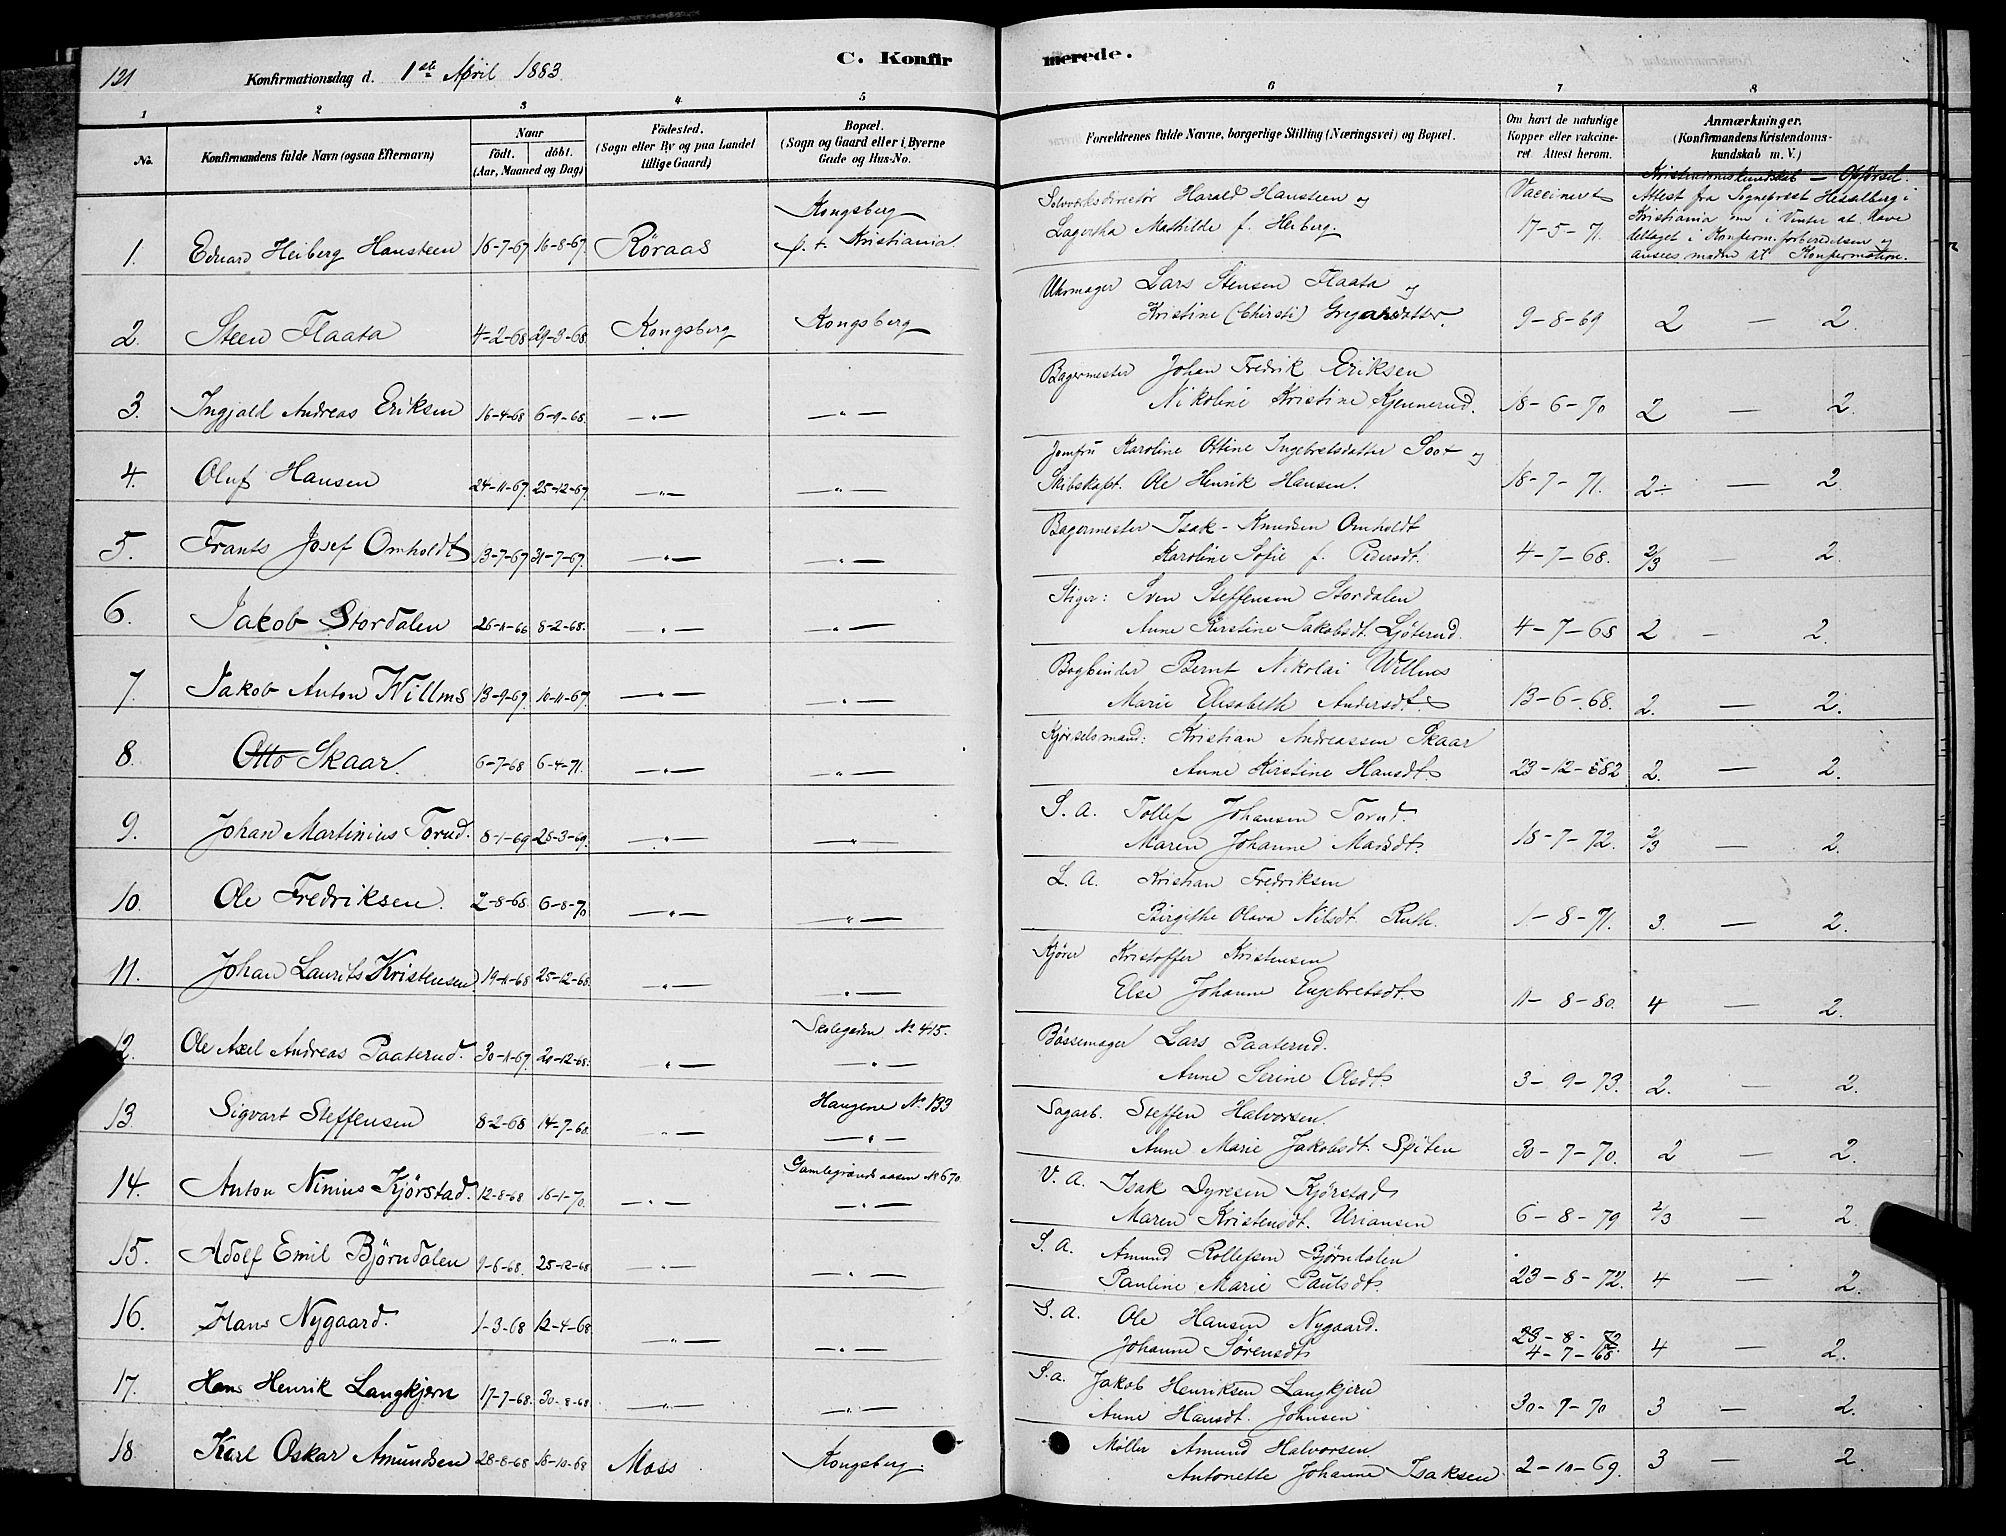 121
Konfirmationsdag d. 1ste April 1883.
C. Konfirmerede.
1 2 3 4 5 6 7 8
No.
Konfirmandens fulde Navn (ogsaa Efternavn)
Naar
født. døbt.
(Aar, Maaned og Dag)
Fødested.
(Sogn eller By og paa Landet
tillige Gaard)
Bopæl.
(Sogn og Gaard eller i Byerne
Gade og Hus-No.
Forældrenes fulde Navne, borgerlige Stilling (Næringsvei) og Bopæl.
Om havt de naturlige
Kopper eller vakcine-
ret Attest herom.
Anmærkninger.
(Konfirmandens Kristendoms-
kundskab m. V.)
Kristendomskundskab — Opførsel
1. Eduard Heiberg Hansteen 16-7-67 16-8-67. Røraas Kongsberg
f. t. Kristiania.
Sølvværksdirectør Harald Hansteen og
Lagertha Mathilde f. Heiberg
Vaccineret
17-5-71.
Attest fra Sogneprest Hesselberg i
Kristiania om i Vinter at have
deltaget i Konferm. forberedelsen og
ansees moden til Konfermation.
2. Steen Flaata 4-2-68 29-3-68 Kongsberg Kongsberg
Uhrmager Lars Stensen Flaata og
Kristine (Chirsti) Gregarsdatter. 9-8-69 2 — 2.
3. Ingjald Andreas Eriksen 16-4-68 6-9-68. —"— —"—
Bagermester Johan Fredrik Eriksen
Nikoline Kristine Kjennerud. 18-6-70 2 — 2.
4. Oluf Hansen 24-11-67. 25-12-67. —"— —"—
Jomfru Karoline Ottine Ingebretsdatter Soot og
Skibskapt. Ole Henrik Hansen. 18-7-71. 2÷ — 2.
5. Frants Josef Omholdt 13-7-67 31-7-67. —"— —"—
Bagermester Isak Knudsen Omholdt
Karoline Sofie f. Pedersdt. 4-7-68. 2/3 — 2.
6. Jakob Stordalen 26-11-66 8-2-68. —"— —"—
Stiger: Sven Steffensen Stordalen
Anne Kirstine Jakobsdt. Ljøterud. 4-7-68 2 — 2.
7. Jakob Anton Willms 13-9-67. 10-11-67. —"— —"—
Bogbinder Bernt Nikolai Willms
Marie Elisabeth Andersdt. 13-6-68. 2. — 2.
8. Otto Skaar. 6-7-68 6-4-71. —"— —"—
Kjørselsmand: Kristian Andreassen Skaar
Anne Kirstine Hansdt. 23-12-82 2. — 2.
9. Johan Martinius Torud. 8-1-69 28-3-69. —"— —"—
S. A. Tollef Johansen Torud.
Maren Johanne Madsdt. 18-7-72. 2/3 — 2.
10. Ole Fredriksen. 2-8-68. 6-8-70 —"— —"—
L. A. Kristian Fredriksen
Birgithe Olava Nilsdt. Ruth. 1-8-71. 3. — 2.
11. Johan Laurits Kristensen. 19-11-68 25-12-68. —"— —"—
Kjører Kristoffer Kristensen
Else Johanne Engebretsdt. 11-8-80. 4 — 2.
12. Ole Axel Andreas Paaterud. 30-11-67. 20-12-68. —"— Skolegaden No 415.
—"—
Bøssemager Lars Paaterud.
Anne Serine Olsdt. 3-9-73. 2. — 2.
13. Sigvart Steffensen 8-2-68 14-7-68. —"— Haugene No 133
—"—
Sagarb. Steffen Halvorsen.
Anne Marie Jakobsdt. Spiten 30-7-70. 2 — 2.
14. Anton Ninius Kjørstad. 12-8-68 16-1-70. —"— Gamlegrændsaasen No 670.
—"—
V. A. Isak Dyresen Kjørstad
Maren Kristensdt. Uriansen 6-8-79 2/3 — 2.
15. Adolf Emil Bjørndalen 9-6-68. 25-12-68 —"— —"—
S. A. Amund Rollefsen Bjørndalen
Pauline Marie Paulsdt. 23-8-72. 4 — 2.
16. Hans Nygaard. 1-3-68 12-4-68. —"— —"—
S. A. Ole Hansen Nygaard.
Johanne Sørensdt. 23-8-72
4-7-68. 4 — 2.
17. Hans Henrik Langkjern 17-7-68. 30-8-68 —"— —"—
S. a. Jakob Henriksen Langkjern
Anne Hansdt. Johnsen 30-7-70 3 — 2.
18. Karl Oskar Amundsen 28-8-68 16-10-68 Moss Kongsberg.
Møller Amund Halvorsen.
Antonette Johanne Isaksen 2-10-69. 3 — 2.